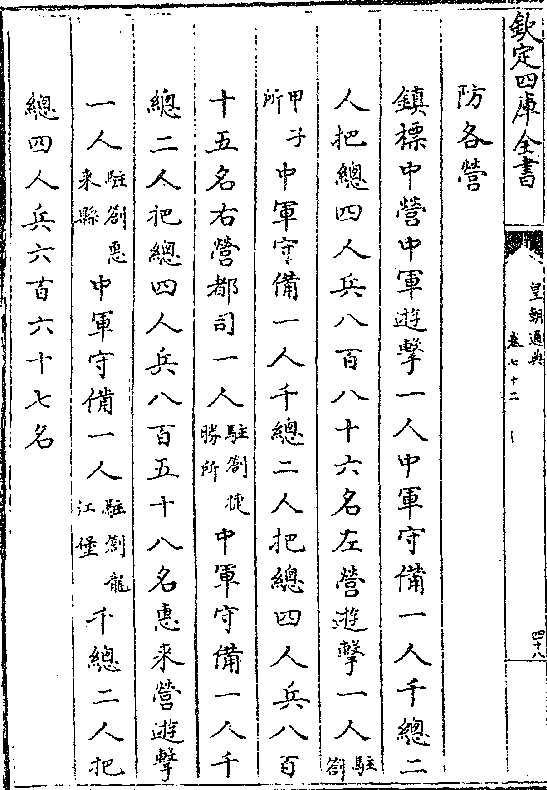 欽定四庫全書
皇朝通典
卷七十二
四十八
防各營
鎮標中營中軍遊擊一人中軍守備一人千總二
人把總四人兵八百八十六名左營遊擊一人駐劄
甲子所中軍守備一人千總二人把總四人兵八百
十五名右營都司一人駐劄捷勝所中軍守備一人千
總二人把總四人兵八百五十八名惠来營遊擊
一人駐劄惠来縣中軍守備一人駐劄龍江堡千總二人把
總四人兵六百六十七名